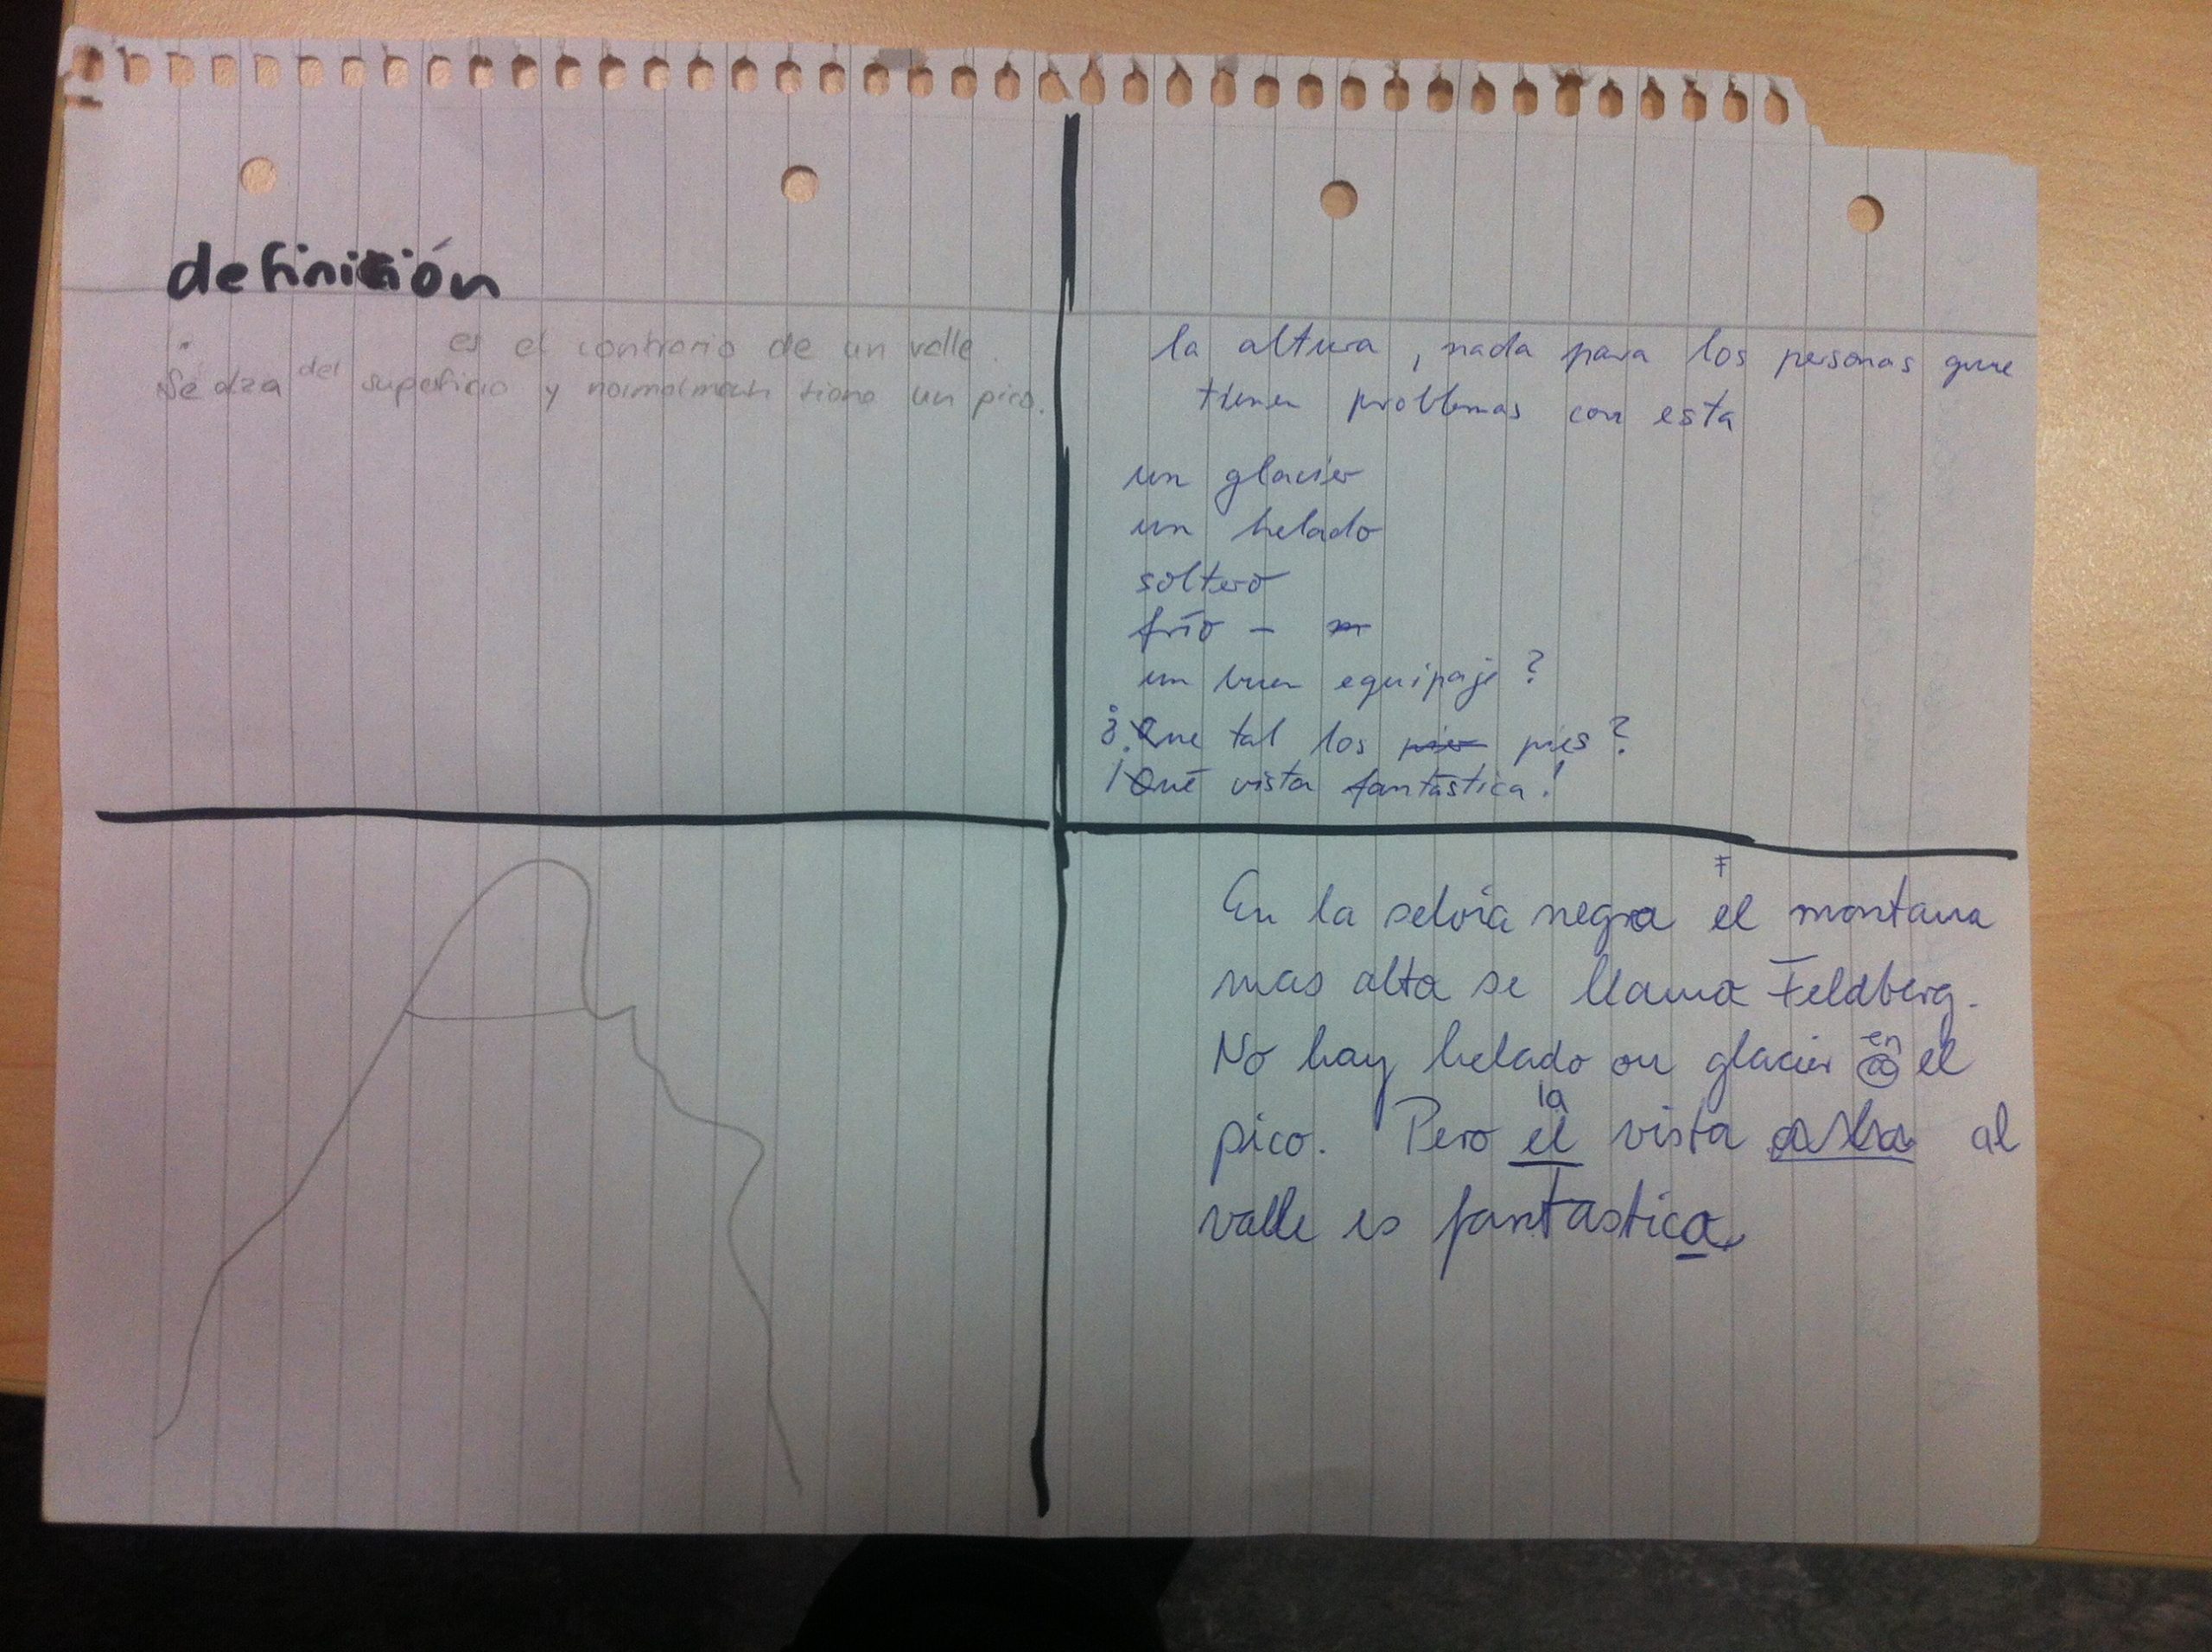 definición
es el contrario de un valle.
Se alza del superficio y normalment tiene un pico.
la altura, nada para los personas que
tienen problemas con esta
un glacier
un helado
soltero
frío -
un buen equipaje?
¿Que tal los pies?
¡Qué vista fantástica!
En la selvia negra el montana
mas alta se llama Feldberg.
No hay helado ou glacier en el
pico. Pero el la vista al
valle es fantastica.